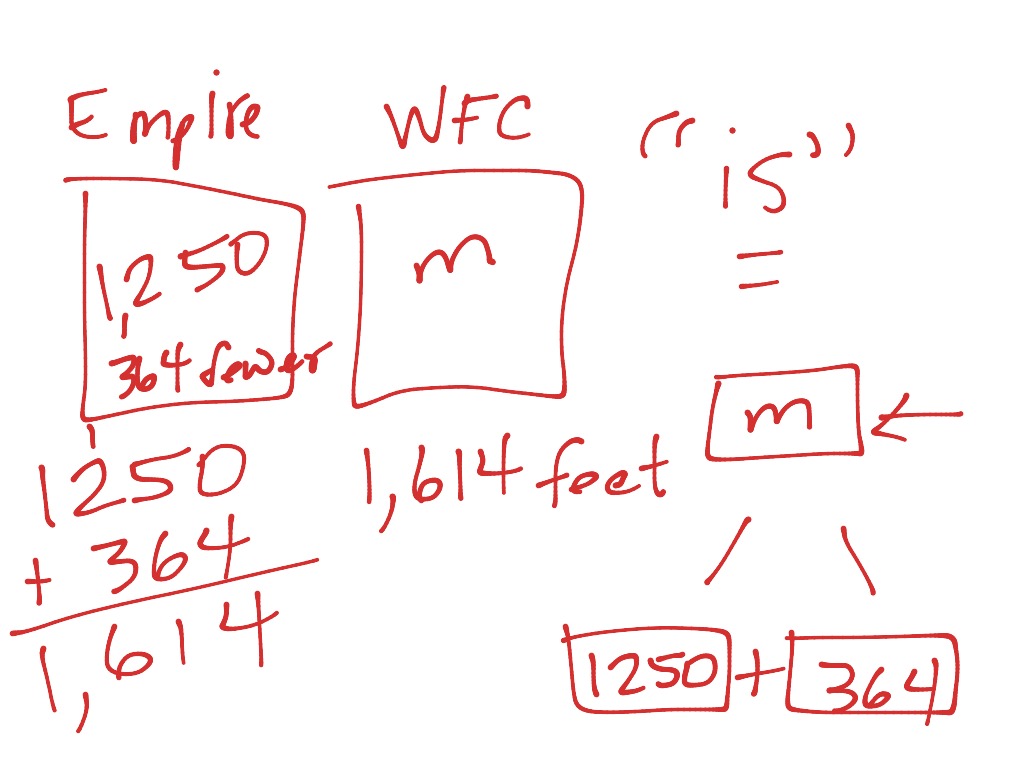 Empire WFC
"is"
=
1,250
m
364 fewer
m
1
1250
+ 364
1,614
1,614 feet
1250 + 364